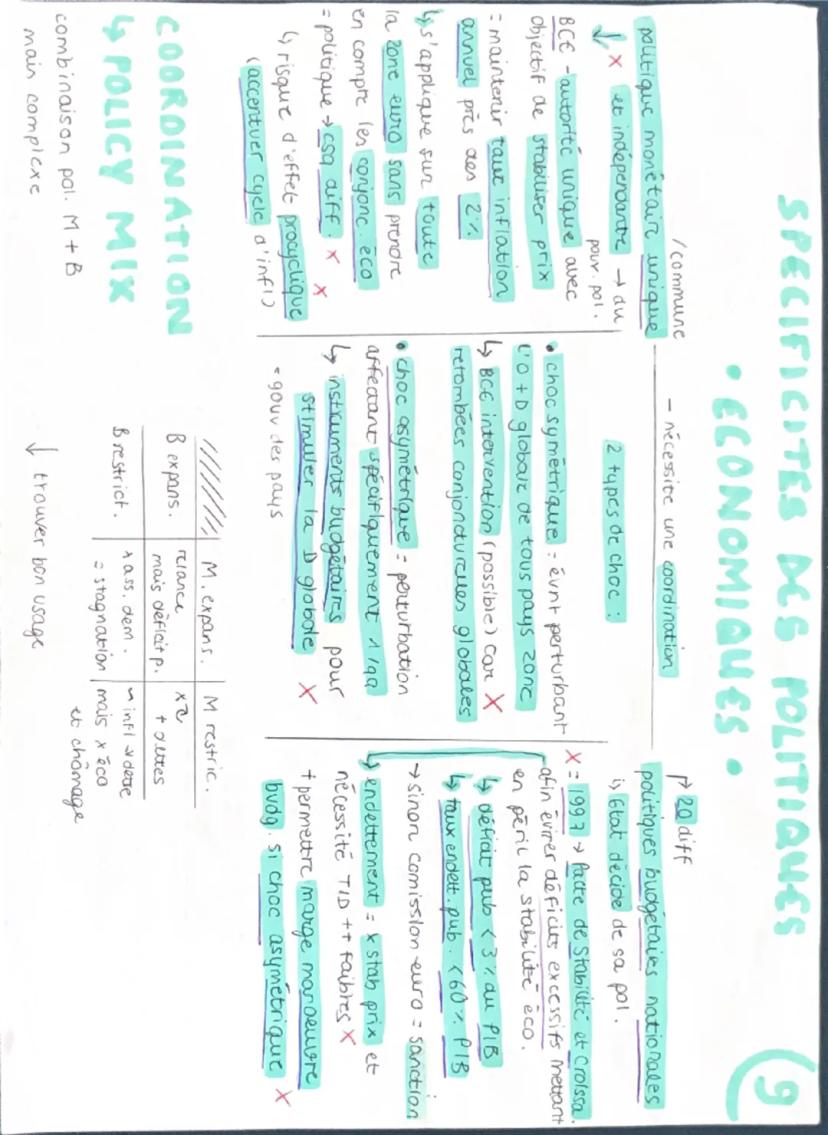 SPECIFICITES DES POLITIQUES
• ECONOMIQUES •
9
/commune
politique monétaire unique
↓ × et indépendante → du
pouv. pol.
BCE - autorité unique avec
objectif de stabiliser prix
= maintenir taux inflation
annuel près des 2%
↳ s'applique sur toute
la zone euro sans prendre
en compte les conjonc. éco
= politique → csq diff. ×
↳ risque d'effet procyclique ×
(accentuer cycle d'infl)
- nécessite une coordination
2 types de choc :
• choc symétrique = évnt perturbant
l'O + D globale de tous pays zone
↳ BCE intervention (possible) car ×
retombées conjoncturelles globales
• choc asymétrique = perturbation
affectant spécifiquement 1 / qq
↳ instruments budgétaires pour
stimuler la D globale ×
= gouv des pays
↱ 20 diff
politiques budgétaires nationales
↳ Etat décide de sa pol.
× = 1997 → Pacte de Stabilité et Croissa.
afin éviter déficits excessifs mettant
en péril la stabilité éco.
↳ déficit pub < 3% du PIB
↳ taux endett. pub. < 60% PIB
→ sinon comission euro = sanction
↳ endettement = × stab prix et
nécessité TID ++ faibles ×
+ permettre marge manoeuvre
budg. si choc asymétrique ×
COORDINATION
↳ POLICY MIX
combinaison pol. M + B
mais complexe
M. expans. M restric.
B expans. relance
mais déficit p.
+ dettes
B restrict. + ass. dem.
= stagnation
~ infl → dette
mais × éco
et chômage
↓ trouver bon usage